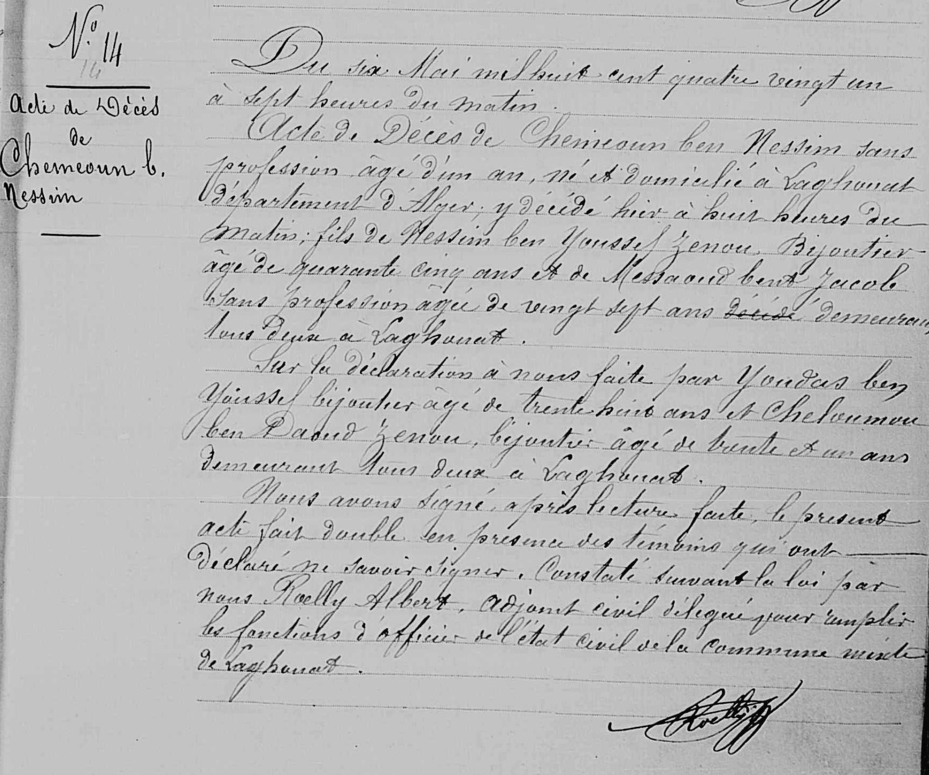 N.o 14
14
Acte de Décès
de
Chemeoun b.
Nessim
Du six Mai mil huit cent quatre vingt un
à sept heures du matin.
Acte de Décès de Chemeoun ben Nessim sans
profession âgé d'un an, né et domicilié à Laghouat
département d'Alger; y décédé hier à huit heures du
matin; fils de Nessim ben Youssef Zenou, Bijoutier
âgé de quarante cinq ans et de Messaoud bent Jacob
sans profession âgée de vingt sept ans décédé demeurant
tous deux à Laghouat.
Sur la déclaration à nous faite par Youdas ben
Youssef bijoutier âgé de trente huit ans et Cheloumou
ben Daoud Zenou, bijoutier âgé de trente et un ans
demeurant tous deux à Laghouat.
Nous avons signé, après lecture faite, le present
acte fait double en presence des témoins qui ont
déclaré ne savoir signer. Constaté suivant la loi par
nous Roelly Albert, adjoint civil délégué pour remplir
les fonctions d'officier de l'état civil de la commune mixte
de Laghouat.
Roelly